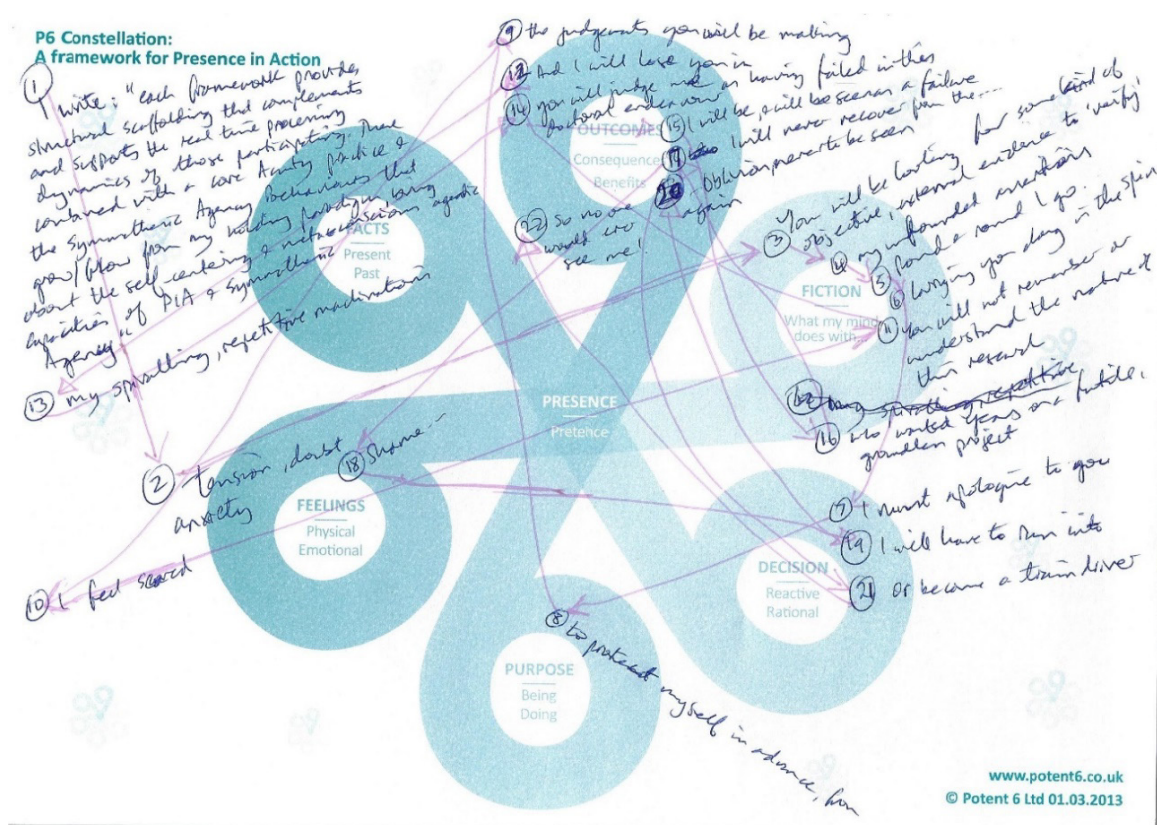 P6 Constellation:
A framework for Presence in Action
① I write: "each framework provides
structural scaffolding that complements
and supports the real time processing
dynamics of those participating. These
combined with a core Acuity practice &
the Symmathesic Agency Behaviours that
grow/flow from my
about the self-centering &
capacities of PIA & Symmathesic
Agency"
⑬ my spiralling, repetitive machinations
② tension, doubt
anxiety
⑱ Shame...
⑩ I feel scared
⑨ the judgements you will be making
⑫ And I will lose you in
⑭ you will judge me as having failed in this
doctoral endeavour
⑮ I will be, will be seen as a failure
⑰ I will never recover from the...
⑳ Oblivion never to be seen
again
㉒ so no one
would
see me!
③ You will be looking for some kind of
objective, external evidence to verify
④ my unfounded assertions
⑤ round & round I go.
⑥ bringing you along in the spin
⑪ you will not remember or
understand the nature of
this research
⑯ who wasted years on a futile,
groundless project
⑦ I must apologise to you
⑲ I will have to run into
㉑ or become a train driver
⑧ to protect myself in advance, from
OUTCOMES
Consequences
Benefits
FACTS
Present
Past
FICTION
What my mind
does with...
PRESENCE
Pretence
FEELINGS
Physical
Emotional
DECISION
Reactive
Rational
PURPOSE
Being
Doing
www.potent6.co.uk
© Potent 6 Ltd 01.03.2013